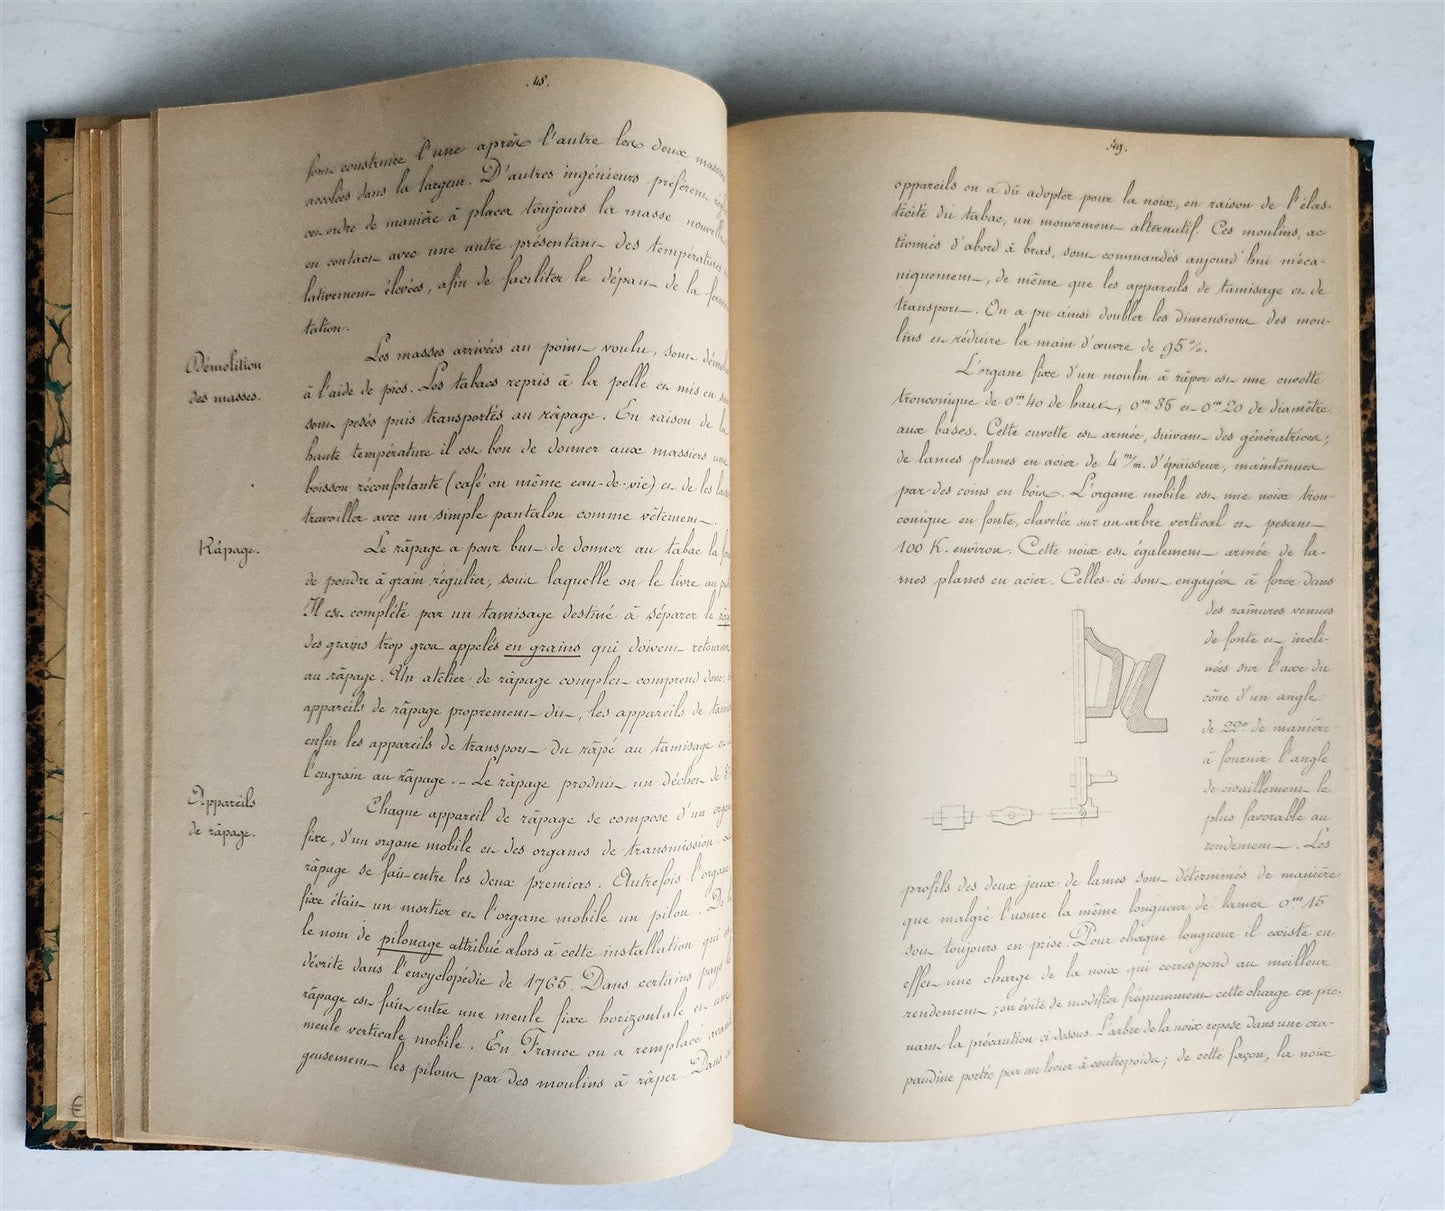 .48.
font construire l'une après l'autre les deux masses
accolées dans la largeur. D'autres ingénieurs préfèrent
cet ordre de manière à placer toujours la masse nouvelle
en contact avec une autre présentant des températures
lativement élevées, afin de faciliter le départ de la fermen
tation.
Démolition
des masses.
Les masses arrivées au point voulu, sont démolies
à l'aide de pics. Les tabacs repris à la pelle et mis en
sont pesés puis transportés au râpage. En raison de la
haute température il est bon de donner aux massiers une
boisson réconfortante (café ou même eau-de-vie) et de les laisser
travailler avec un simple pantalon comme vêtement.
Râpage.
Le râpage a pour but de donner au tabac la
de poudre à grain régulier, sous laquelle on le livre au
Il est complété par un tamisage destiné à séparer le râpé
des grains trop gros appelés en grains qui doivent retourner
au râpage. Un atelier de râpage complet comprend donc:
appareils de râpage proprement dit, les appareils de
enfin les appareils de transport du râpé au tamisage et
l'engrain au râpage. – Le râpage produit un déchet de
Appareils
de râpage.
Chaque appareil de râpage se compose d'un organe
fixe, d'un organe mobile et des organes de transmission.
râpage se fait entre les deux premiers. Autrefois l'organe
fixe était un mortier et l'organe mobile un pilon. De là
le nom de pilonage attribué alors à cette installation qui est
décrite dans l'encyclopédie de 1765. Dans certains pays le
râpage est fait entre une meule fixe horizontale et une
meule verticale mobile. En France on a remplacé avanta
geusement les pilons par des moulins à râper. Dans
49.
appareils on a dû adopter pour la noix, en raison de l'élas-
ticité du tabac, un mouvement alternatif. Ces moulins, ac-
tionnés d'abord à bras, sont commandés aujourd'hui méca-
niquement, de même que les appareils de tamisage et de
transport. On a pu ainsi doubler les dimensions des mou-
lins et réduire la main d'œuvre de 95%.
L'organe fixe d'un moulin à râper est une cuvette
tronconique de 0m40 de haut, 0m35 et 0m20 de diamètre
aux bases. Cette cuvette est armée, suivant des génératrices,
de lames planes en acier de 4 m/m. d'épaisseur, maintenues
par des coins en bois. L'organe mobile est une noix tron-
conique en fonte, clavetée sur un arbre vertical et pesant
100 K. environ. Cette noix est également armée de la-
mes planes en acier. Celles-ci sont engagées à force dans
des rainures venues
de fonte et incli-
nées sur l'axe du
cône d'un angle
de 22° de manière
à fournir l'angle
de cisaillement le
plus favorable au
rendement. Les
profils des deux jeux de lames sont déterminés de manière
que malgré l'usure la même longueur de lames 0m15
soit toujours en prise. Pour chaque longueur il existe en
effet une charge de la noix qui correspond au meilleur
rendement; on évite de modifier fréquemment cette charge en pre-
nant la précaution ci-dessus. L'arbre de la noix repose dans une cra-
paudine portée par un levier à contrepoids; de cette façon, la noix